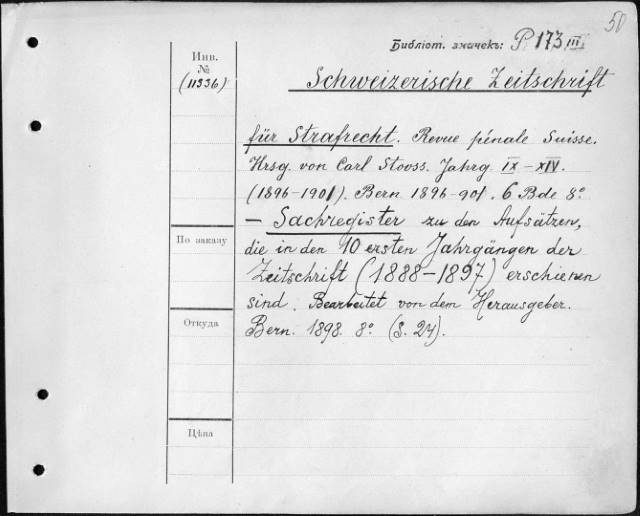 50
Библіот. значекъ: P. 173 III
Инв.
№
(11336)
Schweizerische Zeitschrift
für Strafrecht. Revue pénale Suisse.
Hrsg. von Carl Stooss. Jahrg. IX–XIV.
(1896–1901). Bern 1896–901. 6 Bde 8°
— Sachregister zu den Aufsätzen,
По заказу
die in den 10 ersten Jahrgängen der
Zeitschrift (1888–1897) erschienen
sind. Bearbeitet von dem Herausgeber.
Откуда
Bern. 1898. 8° (S. 24).
Цѣна